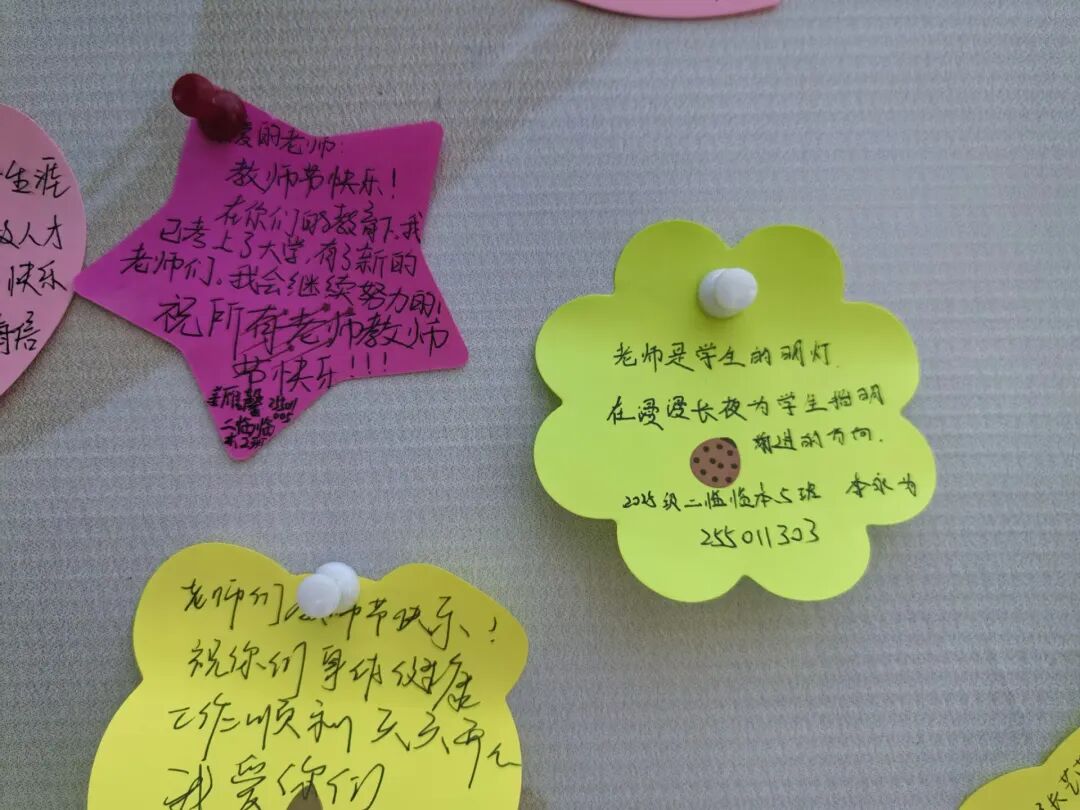 生涯
人才
快乐
爱的老师：
教师节快乐！
在你们的教育下，我
已考上了大学，有了新的
老师们。我会继续努力的！
祝所有老师教师
节快乐！！！
二临临
老师是学生的明灯
在漫漫长夜为学生指明
前进的方向.
2025级二临临本5班 李永为
255011303
老师们 师节快乐！
祝你们身体健康
工作顺利 天天开心
我爱你们